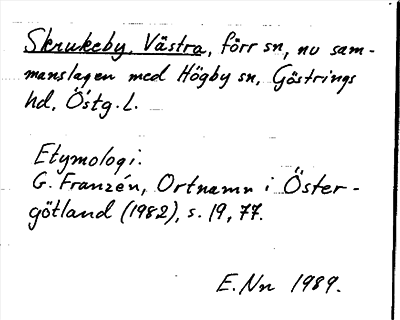 Skrukeby, Västra, förr sn, nu sam-
manslagen med Högby sn, Göstrings
hd, Östg. l.
Etymologi:
G. Franzén, Ortnamn i Öster-
götland (1982), s. 19, 77.
E. Nn 1989.